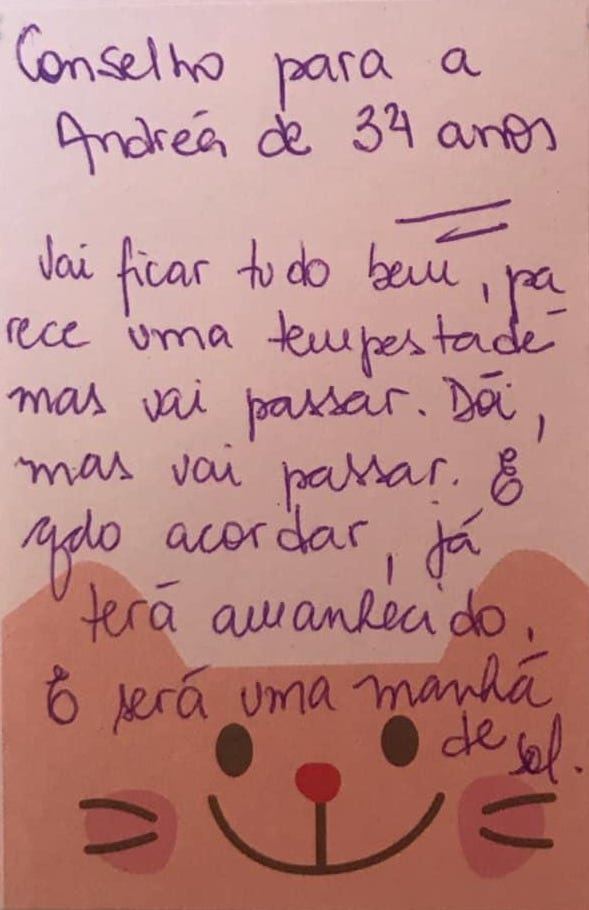 Conselho para a
Andréa de 34 anos
Vai ficar tudo bem, pa
rece uma tempestade
mas vai passar. Dói,
mas vai passar. E
qdo acordar, já
terá amanhecido.
E será uma manhã
de sol.